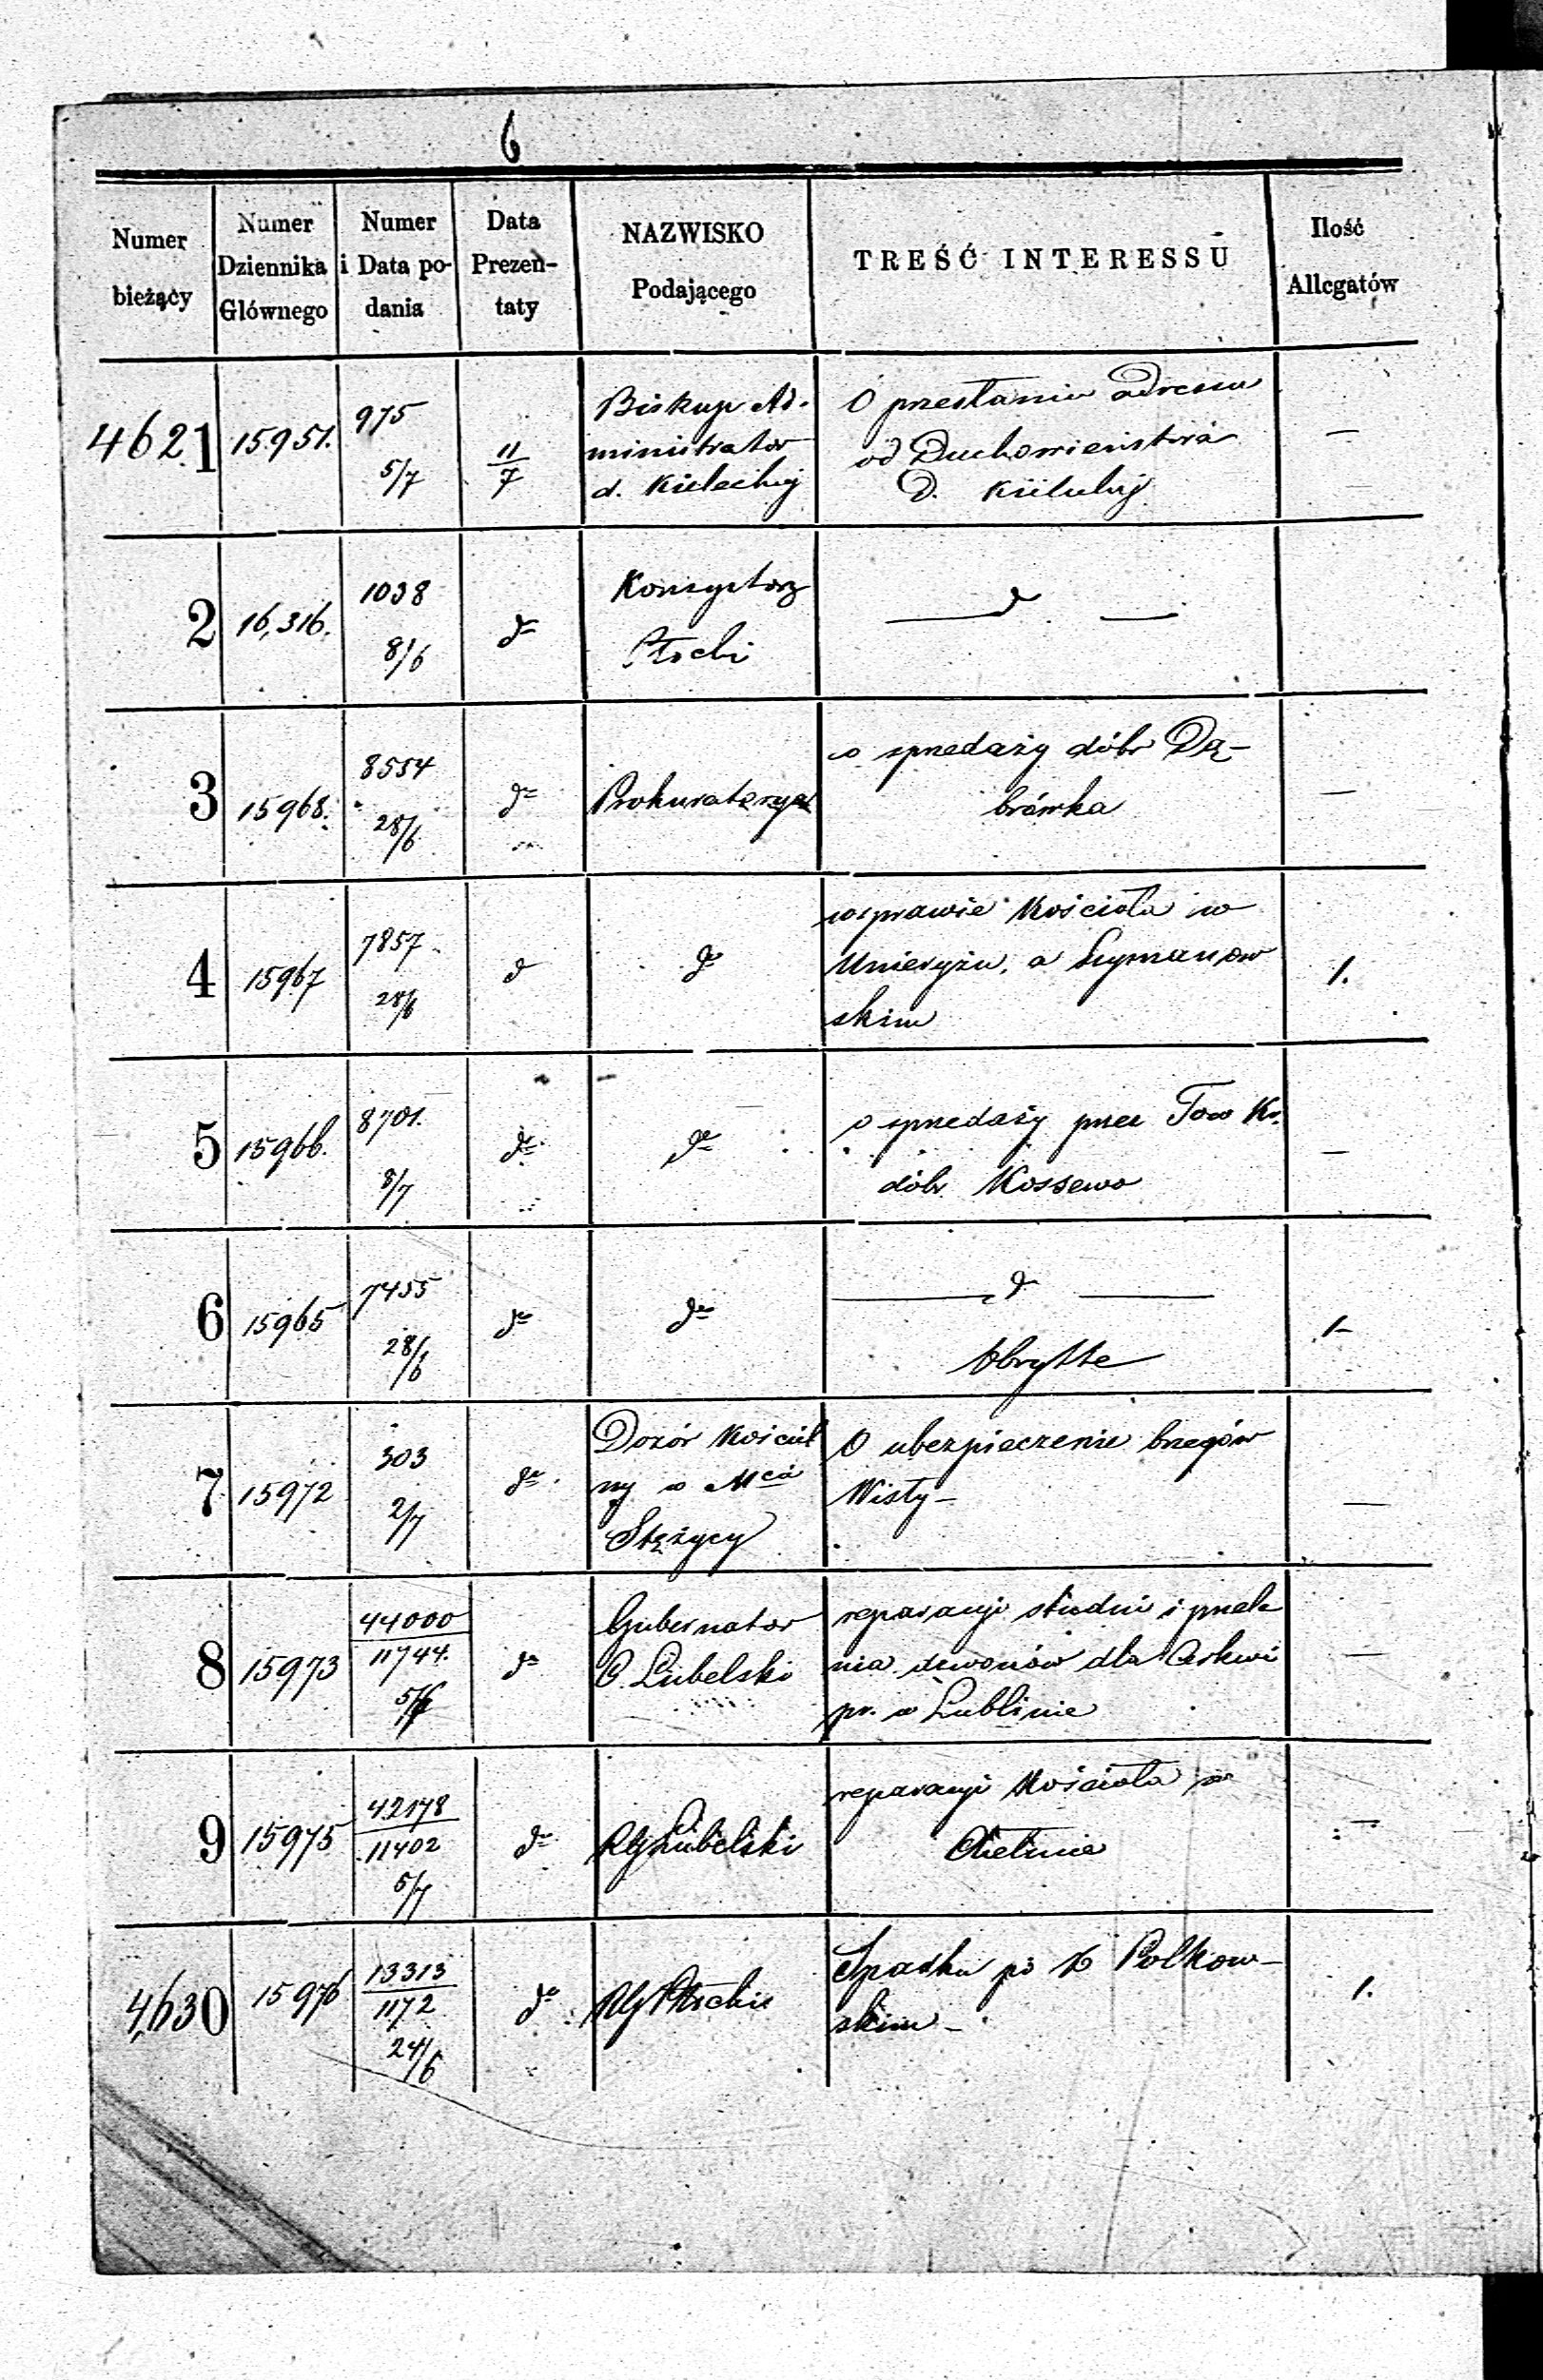 6
Numer bieżący
Numer Dziennika Głównego
Numer i Data podania
Data Prezentaty
NAZWISKO Podającego
TREŚĆ INTERESSU
Ilość Allegatów
4621
15951.
975
5/7
11/7
Biskup Ad-
ministrator
d. Kieleckiej
O przesłaniu adressu
od Duchowieństwa
D. Kieleckiej
—
2
16,316.
1038
8/6
do
Konsystorz
Płocki
— d —
3
15968.
8554
28/6
do
Prokuratorya
o sprzedaży dóbr Dą-
brówka
—
4
15967
7857
28/6
d
do
w sprawie Kościoła w
Unierzyżu, a Szymanow
skim
1.
5
15966.
8701.
8/7
do
do
o sprzedaży przez Tow Kr.
dóbr Kossewo
—
6
15965
7455
28/6
do
do
— d —
Obrytte
1-
7
15972
303
2/7
do
Dozór Kościel
ny w Mcie
Stężycy
O ubezpieczenie brzegów
Wisły—
—
8
15973
44000
11744.
do
Gubernator
C. Lubelski
reparacyi studni i przela
nia dzwonów dla Cerkwi
pr. w Lublinie
—
9
15975
42178
11402
5/7
do
RG Lubelski
reparacyi Kościoła w
Chełmie
—
4630
15976
13313
1172
24/6
do
RG Płocki
Spadku po X Polkow-
skim—
1.